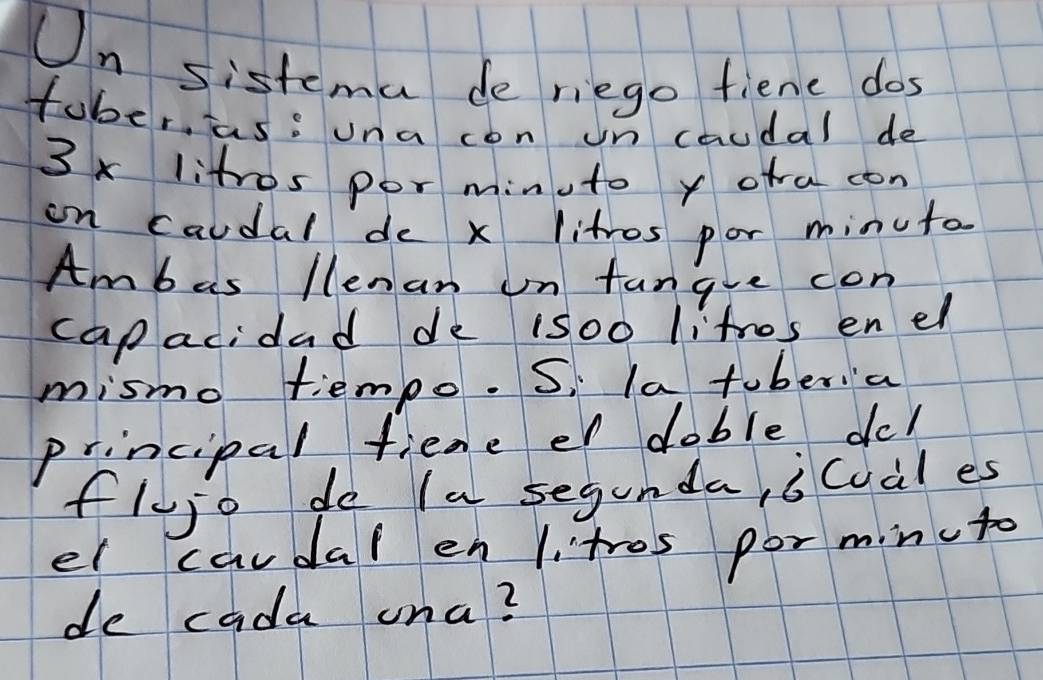 Un sistema de riego tiene dos
tuberías: una con un caudal de
3x litros por minuto y otra con
un caudal de x litros por minuto
Ambas llenan un tanque con
capacidad de 1500 litros en el
mismo tiempo. Si la tubería
principal tiene el doble del
flujo de la segunda, ¿Cuál es
el caudal en litros por minuto
de cada una?